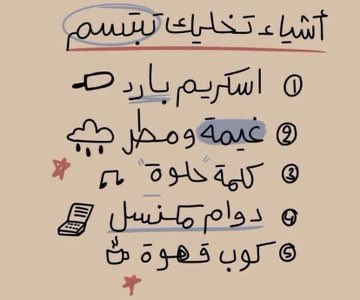 أشياء تخليك تبتسم
① اسكريم بارد
② غيمة ومطر
③ كلمة "حلوة"
④ دوام مكنسل
⑤ كوب قهوة